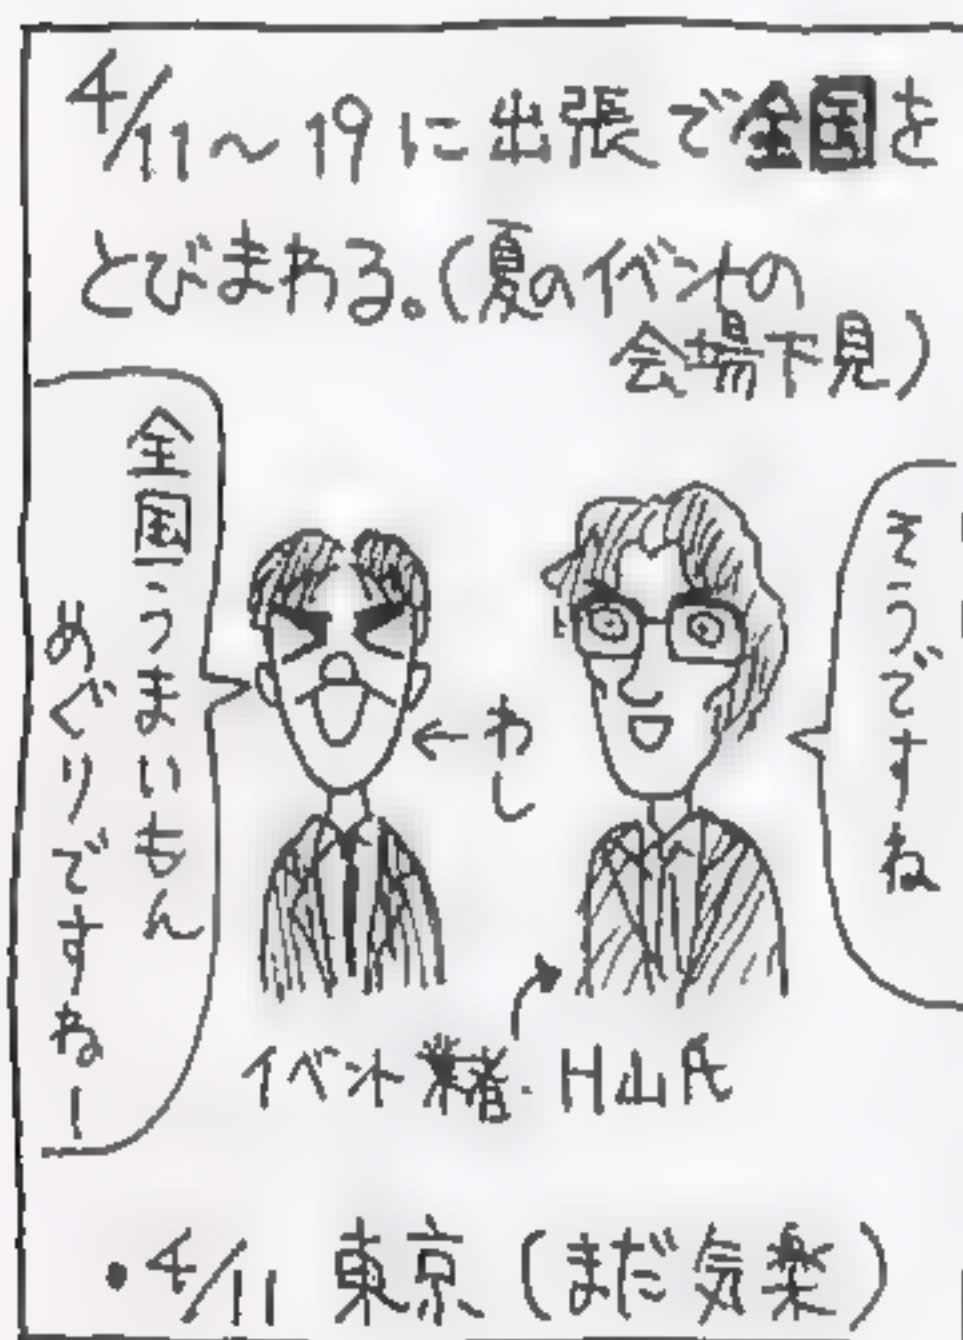 4/11～19に出張で全国を
とびまわる。(夏のイベントの
会場下見)
そうですね
全国うまいもん
めぐりですねー
←わし
イベント業者.H山氏
・4/11 東京(まだ気楽)